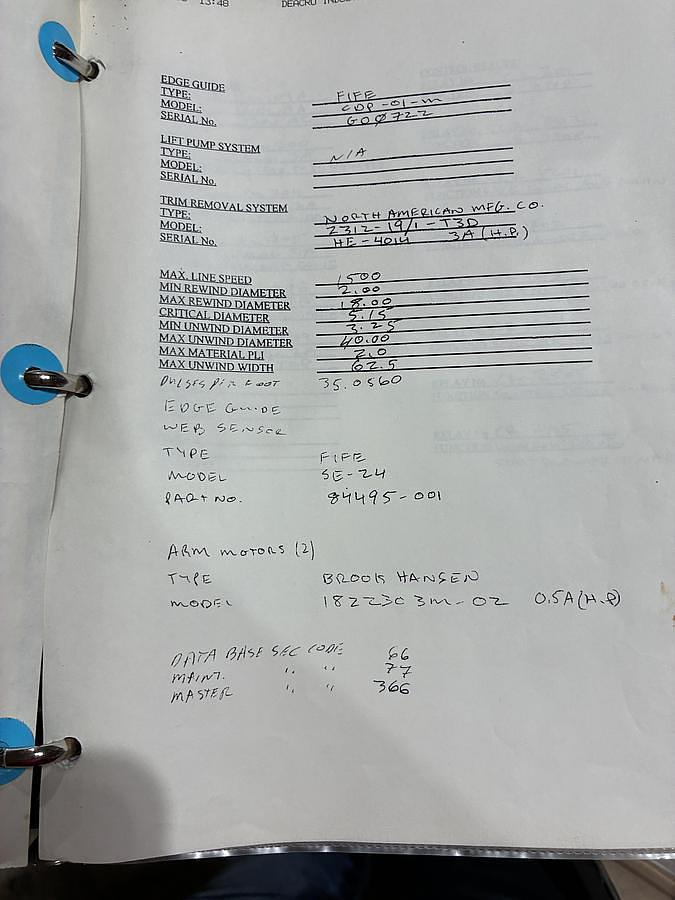 13:48 DEACRO
EDGE GUIDE
TYPE: FIFE
MODEL: CDP-01-M
SERIAL No. G0Ø722
LIFT PUMP SYSTEM
TYPE: N/A
MODEL:
SERIAL No.
TRIM REMOVAL SYSTEM
TYPE: NORTH AMERICAN MFG. CO.
MODEL: 2312-19/1-T3D
SERIAL No. HE-4014 3A (H.P.)
MAX. LINE SPEED 1500
MIN REWIND DIAMETER 2.00
MAX REWIND DIAMETER 18.00
CRITICAL DIAMETER 5.15
MIN UNWIND DIAMETER 3.25
MAX UNWIND DIAMETER 40.00
MAX MATERIAL PLI 2.0
MAX UNWIND WIDTH 62.5
PULSES PER FOOT 35.0560
EDGE GUIDE
WEB SENSOR
TYPE FIFE
MODEL SE-24
PART NO. 84495-001
ARM MOTORS (2)
TYPE BROOK HANSEN
MODEL 1822303M-02 0.5A (H.P)
DATA BASE SEC CODE 66
MAINT. " " 77
MASTER " " 366